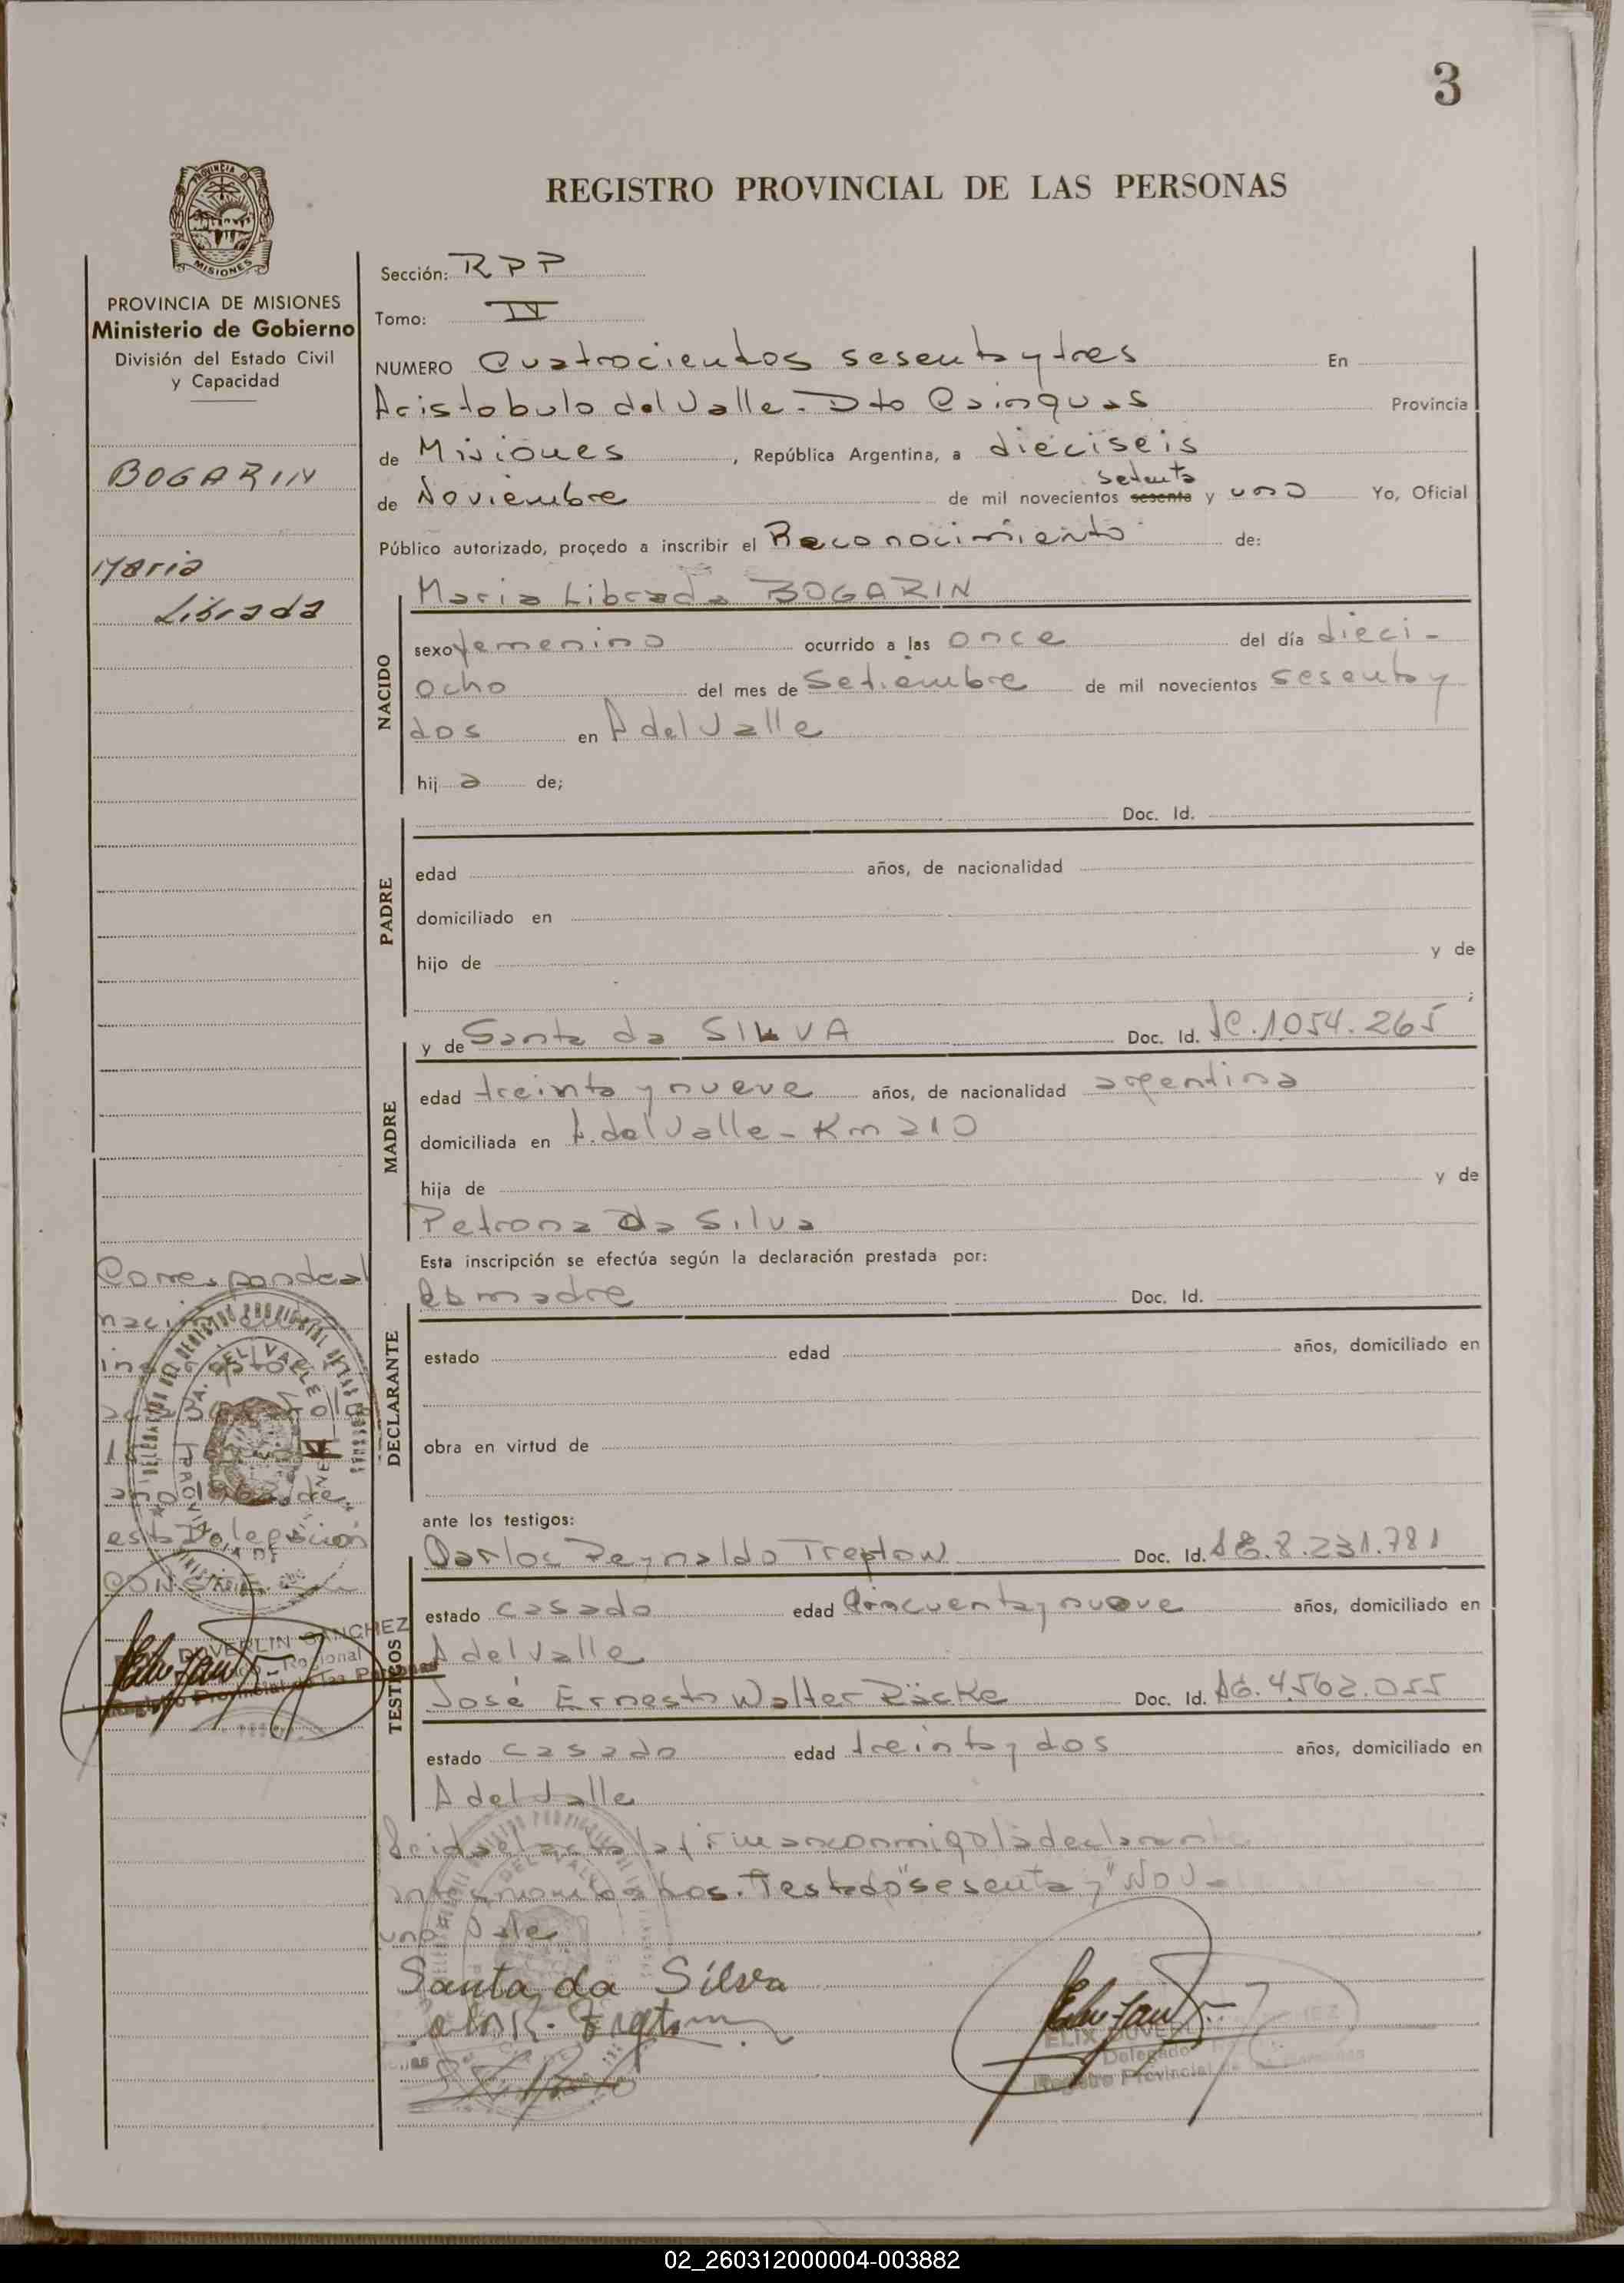 3
REGISTRO PROVINCIAL DE LAS PERSONAS
PROVINCIA DE
MISIONES
PROVINCIA DE MISIONES
Ministerio de Gobierno
División del Estado Civil
y Capacidad
BOGARIN
Maria
Librada
Sección: RPP
Tomo: IV
NUMERO Cuatrocientos sesenta y tres En
Aristobulo del Valle. Dto Cainguas Provincia
de Misiones, República Argentina, a dieciseis
setenta
de Noviembre de mil novecientos sesenta y uno Yo, Oficial
Público autorizado, procedo a inscribir el Reconocimiento de:
NACIDO
Maria Librada BOGARIN
sexo femenino ocurrido a las once del día dieci-
ocho del mes de Setiembre de mil novecientos sesenta y
dos en A del Valle
hija de;
PADRE
Doc. Id.
edad años, de nacionalidad
domiciliado en
hijo de y de
;
MADRE
y de Santa da SILVA Doc. Id. IC.1054.265
edad treinta y nueve años, de nacionalidad argentina
domiciliada en A. del Valle - Km 210
hija de y de
Petrona Da Silva
Esta inscripción se efectúa según la declaración prestada por:
DECLARANTE
la madre Doc. Id.
estado edad años, domiciliado en
obra en virtud de
ante los testigos:
TESTIGOS
Carlos Reynaldo Treptow Doc. Id. 8.231.781
estado casado edad cincuenta y nueve años, domiciliado en
A del Valle
José Ernesto Walter Doc. Id. 4.562.055
estado casado edad treinta y dos años, domiciliado en
A del Valle
Leida el acta la firman conmigo la declarante
Testado "sesenta y" No V-
uno Vale
Santa da Silva
DUVERLIN
Delegado
Registro Provincial de las Personas
Corresponde al
esta Delegación
CONSTE.
DUVERLIN SANCHEZ
Regional
Registro Provincial de las Personas
02_260312000004-003882